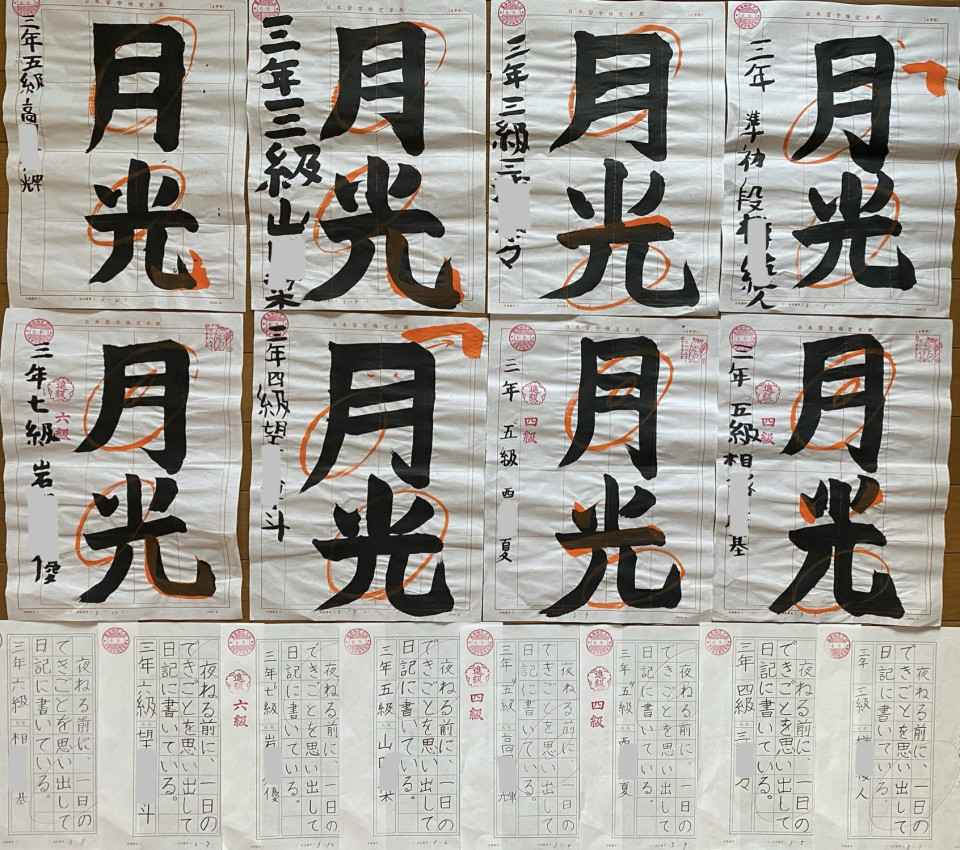 日本習字検定半紙
月光
三年五級高
輝
月光
三年三級山
栄
日本習字検定半紙
月光
三年三級三
々
日本習字検定半紙
月光
三年 準初段
人
日本習字検定半紙
月光
進級
六級
三年七級 岩
優
日本習字検定半紙
月光
三年四級望
斗
日本習字検定半紙
月光
進級
四級
三年 五級 西
夏
日本習字検定半紙
月光
進級
四級
三年 五級 相
基
夜ねる前に、一日の
できごとを思い出して
日記に書いている。
三年六級 相
基
夜ねる前に、一日の
できごとを思い出して
日記に書いている。
三年六級 望
斗
夜ねる前に、一日の
できごとを思い出して
日記に書いている。
三年七級 岩
優
進級
六級
夜ねる前に、一日の
できごとを思い出して
日記に書いている。
三年五級 山
夜ねる前に、一日の
できごとを思い出して
日記に書いている。
三年五級 高
進級
四級
夜ねる前に、一日の
できごとを思い出して
日記に書いている。
三年五級 西
夏
進級
四級
夜ねる前に、一日の
できごとを思い出して
日記に書いている。
三年四級 三
々
夜ねる前に、一日の
できごとを思い出して
日記に書いている。
三年 三級
人